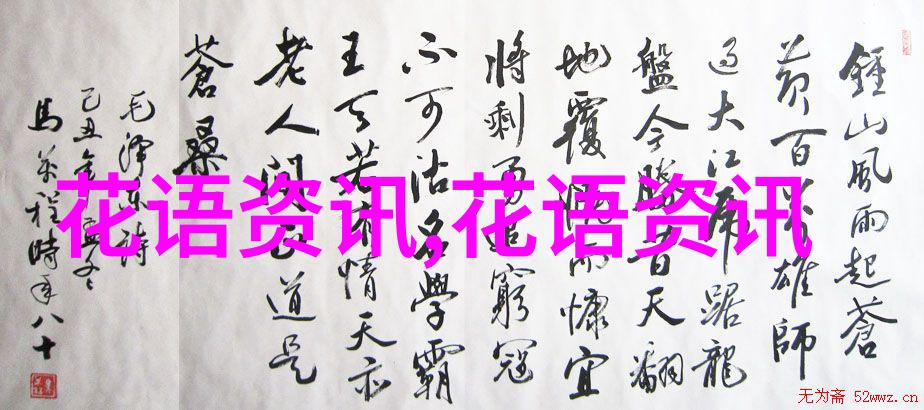 鍾山風雨起蒼
黄百萬雄師
過大江虎踞龍
盤今勝昔天翻
地覆慨而慷宜
將剩勇追窮寇
不可沽名學霸
王天若有情天亦
老人間正道是
蒼桑
毛澤東詩
己丑年孟冬
馬萬程時年八十
花语资讯,花语资讯
无为斋 52wwz.cn